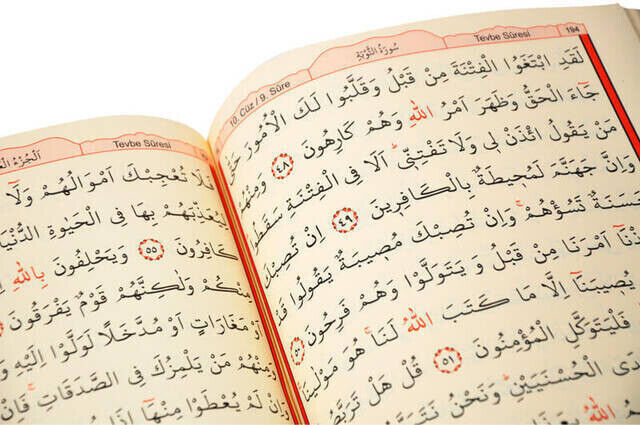 10. Cüz / 9. Sûre سُورَةُ التَّوْبَةِ Tevbe Sûresi 194
لَقَدِ ابْتَغَوُا الْفِتْنَةَ مِنْ قَبْلُ وَقَلَّبُوا لَكَ الْاُمُورَ
جَٓاءَ الْحَقُّ وَظَهَرَ اَمْرُ اللّٰهِ وَهُمْ كَارِهُونَ ﴿٤٨﴾ وَمِنْهُمْ
مَنْ يَقُولُ ائْذَنْ لِي وَلَا تَفْتِنِّيۜ اَلَا فِي الْفِتْنَةِ سَقَطُواۜ
وَاِنَّ جَهَنَّمَ لَمُحِيطَةٌ بِالْكَافِرِينَ ﴿٤٩﴾ اِنْ تُصِبْكَ
حَسَنَةٌ تَسُؤْهُمْۚ وَاِنْ تُصِبْكَ مُصِيبَةٌ يَقُولُوا
اَمْرَنَا مِنْ قَبْلُ وَيَتَوَلَّوْا وَهُمْ فَرِحُونَ ﴿٥٠﴾
يُصِيبَنَٓا اِلَّا مَا كَتَبَ اللّٰهُ لَنَاۚ هُوَ مَوْلٰينَا
فَلْيَتَوَكَّلِ الْمُؤْمِنُونَ ﴿٥١﴾ قُلْ هَلْ
الْحُسْنَيَيْنِۜ وَنَحْنُ
اللّٰهُ
Tevbe Sûresi
فَلَا تُعْجِبْكَ اَمْوَالُهُمْ وَلَٓا
لِيُعَذِّبَهُمْ بِهَا فِي الْحَيٰوةِ الدُّنْيَا
كَافِرُونَ ﴿٥٥﴾ وَيَحْلِفُونَ بِاللّٰهِ
مِنْكُمْ وَلٰكِنَّهُمْ قَوْمٌ يَفْرَقُونَ
اَوْ مَغَارَاتٍ اَوْ مُدَّخَلًا لَوَلَّوْا اِلَيْهِ
مَنْ يَلْمِزُكَ فِي الصَّدَقَاتِۚ فَاِنْ
وَاِنْ لَمْ يُعْطَوْا مِنْهَٓا اِذَا